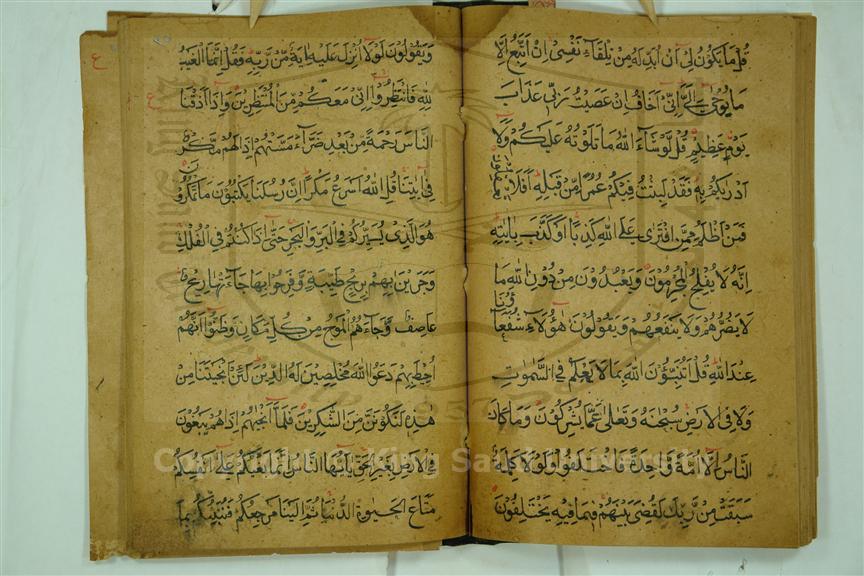 قل ما يكون لي ان ابدله من تلقاء نفسي ان اتبع الا
ما يوحى الي اني اخاف ان عصيت ربي عذاب
يوم عظيم قل لو شاء الله ما تلوته عليكم ولا
ادريكم به فقد لبثت فيكم عمرا من قبله افلا تعقلون
فمن اظلم ممن افترى على الله كذبا او كذب بايته
انه لا يفلح المجرمون ويعبدون من دون الله ما
لا يضرهم ولا ينفعهم ويقولون هؤلاء شفعاؤنا
عند الله قل اتنبؤن الله بما لا يعلم في السموت
ولا في الارض سبحنه وتعالى عما يشركون وما كان
الناس الا امة واحدة فاختلفوا ولولا كلمة
سبقت من ربك لقضي بينهم فيما فيه يختلفون
ويقولون لولا انزل عليه اية من ربه فقل انما الغيب
لله فانتظروا اني معكم من المنتظرين واذا اذقنا
الناس رحمة من بعد ضراء مستهم اذا لهم مكر
في اياتنا قل الله اسرع مكرا ان رسلنا يكتبون ما تمكرون
هو الذي يسيركم في البر والبحر حتى اذا كنتم في الفلك
وجرين بهم بريح طيبة وفرحوا بها جاءتها ريح
عاصف وجاءهم الموج من كل مكان وظنوا انهم
احيط بهم دعوا الله مخلصين له الدين لئن انجيتنا من
هذه لنكونن من الشكرين فلما انجيهم اذا هم يبغون
في الارض بغير الحق يايها الناس انما بغيكم على انفسكم
متاع الحيوة الدنيا ثم الينا مرجعكم فننبئكم بما
Copyright © King Saud University